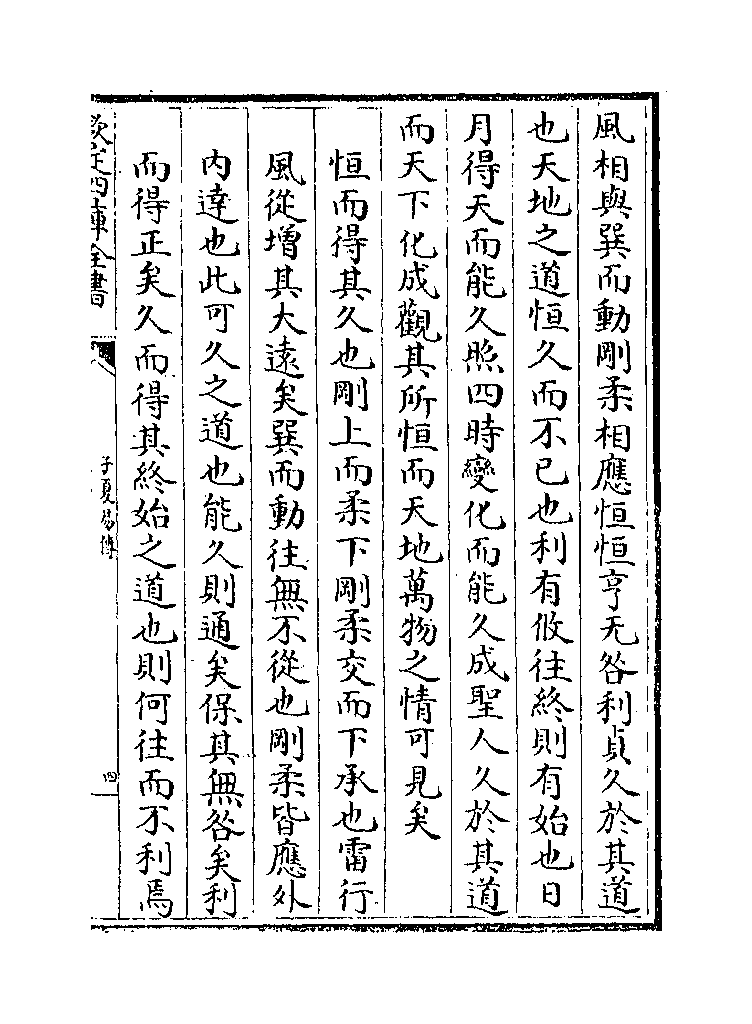 風相與巽而動剛柔相應恒恒亨无咎利貞久於其道
也天地之道恒久而不已也利有攸往終則有始也日
月得天而能久照四時變化而能久成聖人久於其道
而天下化成觀其所恒而天地萬物之情可見矣
恒而得其久也剛上而柔下剛柔交而下承也雷行
風從增其大遠矣巽而動往無不從也剛柔皆應外
内達也此可久之道也能久則通矣保其無咎矣利
而得正矣久而得其終始之道也則何往而不利焉
欽定四庫全書
子夏易傳
四